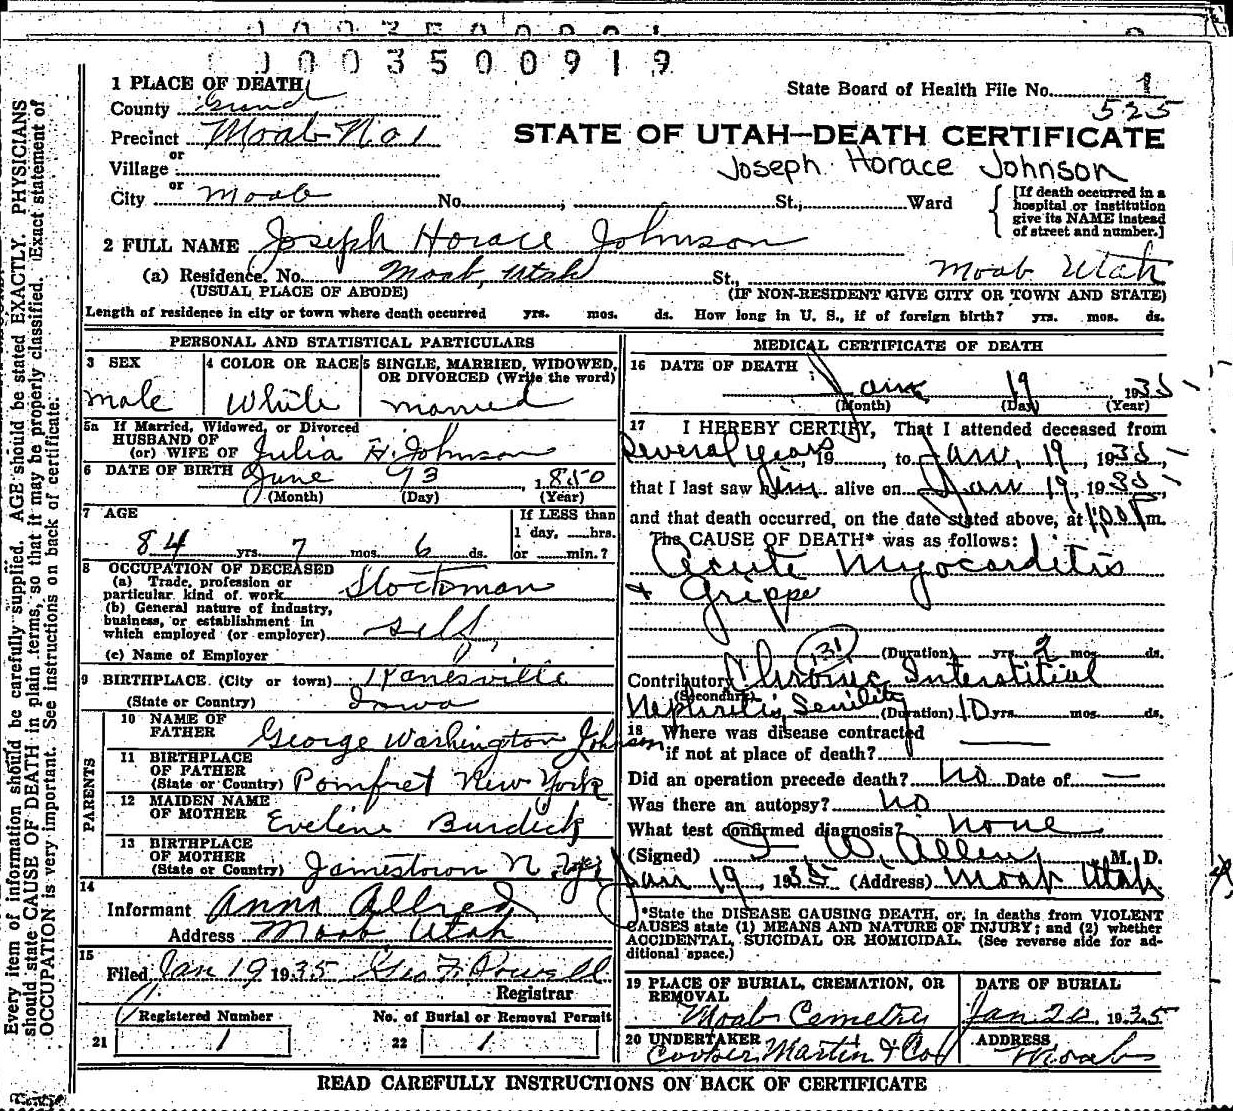 0003500919
1 PLACE OF DEATH
State Board of Health File No. 1
County Grand
525
Precinct Moab No 1
STATE OF UTAH—DEATH CERTIFICATE
or
Village
Joseph Horace Johnson
or
City Moab No. , St., Ward
[If death occurred in a hospital or institution give its NAME instead of street and number.]
2 FULL NAME Joseph Horace Johnson
(a) Residence. No. Moab, Utah St., Moab Utah
(USUAL PLACE OF ABODE) (IF NON-RESIDENT GIVE CITY OR TOWN AND STATE)
Length of residence in city or town where death occurred yrs. mos. ds. How long in U. S., if of foreign birth? yrs. mos. ds.
PERSONAL AND STATISTICAL PARTICULARS
3 SEX
male
4 COLOR OR RACE
White
5 SINGLE, MARRIED, WIDOWED,
OR DIVORCED (Write the word)
married
5a If Married, Widowed, or Divorced
HUSBAND OF
(or) WIFE OF Julia H. Johnson
6 DATE OF BIRTH June 13, 1850
(Month) (Day) (Year)
7 AGE
84 yrs. 7 mos. 6 ds.
If LESS than
1 day, hrs.
or min.?
8 OCCUPATION OF DECEASED
(a) Trade, profession or
particular kind of work Stockman
(b) General nature of industry,
business, or establishment in
which employed (or employer) self
(c) Name of Employer
9 BIRTHPLACE (City or town) Kanesville
(State or Country) Iowa
PARENTS
10 NAME OF
FATHER George Washington Johnson
11 BIRTHPLACE
OF FATHER
(State or Country) Pomfret New York
12 MAIDEN NAME
OF MOTHER Eveline Burdick
13 BIRTHPLACE
OF MOTHER
(State or Country) Jamestown N.
14
Informant Anna Allred
Address Moab Utah
15
Filed Jan 19 1935 Geo F. Powell
Registrar
Registered Number
21 1
No. of Burial or Removal Permit
22 1
MEDICAL CERTIFICATE OF DEATH
16 DATE OF DEATH
Jan 19 1935
(Month) (Day) (Year)
17 I HEREBY CERTIFY, That I attended deceased from
Several years, 19 , to Jan, 19, 1935,
that I last saw him alive on Jan 19, 1935,
and that death occurred, on the date stated above, at 1:00 P m.
The CAUSE OF DEATH* was as follows:
Acute Myocarditis
& Grippe
131
(Duration) yrs. 2 mos. ds.
Contributory Chronic Interstitial
(Secondary)
Nephritis, Senility (Duration) 10 yrs. mos. ds.
18 Where was disease contracted
if not at place of death?
Did an operation precede death? No Date of —
Was there an autopsy? no
What test confirmed diagnosis? none
(Signed) I. W. Allen M. D.
Jan 19, 1935 (Address) Moab Utah
*State the DISEASE CAUSING DEATH, or, in deaths from VIOLENT
CAUSES state (1) MEANS AND NATURE OF INJURY; and (2) whether
ACCIDENTAL, SUICIDAL OR HOMICIDAL. (See reverse side for ad-
ditional space.)
19 PLACE OF BURIAL, CREMATION, OR
REMOVAL
Moab Cemetery
DATE OF BURIAL
Jan 20, 1935
20 UNDERTAKER
Cooper Martin & Co
ADDRESS
Moab
READ CAREFULLY INSTRUCTIONS ON BACK OF CERTIFICATE
Every item of information should be carefully supplied. AGE should be stated EXACTLY. PHYSICIANS
should state CAUSE OF DEATH in plain terms, so that it may be properly classified. Exact statement of
OCCUPATION is very important. See instructions on back of certificate.